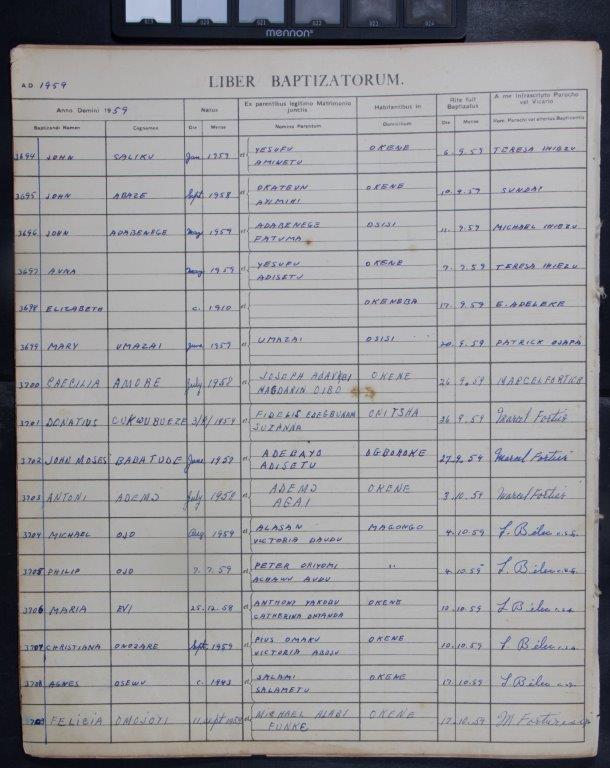 019 020 021 022 023 024
mennon
A.D. 1959
LIBER BAPTIZATORUM.
Anno Domini 1959
Natus
Ex parentibus legitimo Matrimonio junctis
Habitantibus in
Rite fuit Baptizatus
A me Infrascripto Parocho vel Vicario
Baptizandi Nomen Cognomen Die Mense Nomina Parentum Domicilium Die Mense Nom. Parochi vel alterius Baptizantis
3694 JOHN SALIKU Jan 1959 et YESUFU OKENE 6.9.59 TERESA IHIEZU
AMINETU
3695 JOHN ABAZE Sept. 1958 et OKATEUN OKENE 10.9.59 SUNDAI
AYIMIHI
3696 JOHN ADABENEGE May 1959 et ADABENEGE OSISI 11.9.59 MICHAEL IHIEZU
FATUMA
3697 ANNA May 1959 et YESUFU OKENE 7.7.59 TERESA IHIEZU
ADISETU
3698 ELIZABETH c. 1910 et OKENEBA 17.9.59 E. ADELEKE
3699 MARY UMAZAI June 1959 et UMAZAI OSISI 20.9.59 PATRICK OJAPA
3700 CAECILIA AMORE July 1958 et JOSEPH OKENE 26.9.59 MARCEL FORTIER
MAGDARIN OIBO
3701 DONATUS CUKWUBUEZE 1959 et FIDELIS EDEGBUNAM ONITSHA 26.9.59 Marcel Fortier
SUZANNA
3702 JOHN MOSES BABATUDE June 1959 et ADEBAYO OGBOROKE 27.9.59 Marcel Fortier
ADISETU
3703 ANTONI ADEMO July 1958 et ADEMO OKENE 3.10.59 Marcel Fortier
AGAI
3704 MICHAEL OJO Aug. 1959 et ALASAN MAGONGO 4.10.59
VICTORIA DAUDU
3705 PHILIP OJO 7.7.59 et PETER ORIYOMI " 4.10.59
ACHAWU AUDU
3706 MARIA EVI 25.12.58 et ANTHONY YAKUBU OKENE 10.10.59
CATHERINA OHYANDA
3707 CHRISTIANA ONOZARE Sept. 1959 et PIUS OMAKU OKENE 10.10.59
VICTORIA ABOSU
3708 AGNES OSEWU c. 1943 et SALAMI OKENE 17.10.59
SALAMETU
3709 FELICIA OMOJOYI 11 Sept 1959 et MICHAEL ALABI OKENE 17.10.59
FUNKE